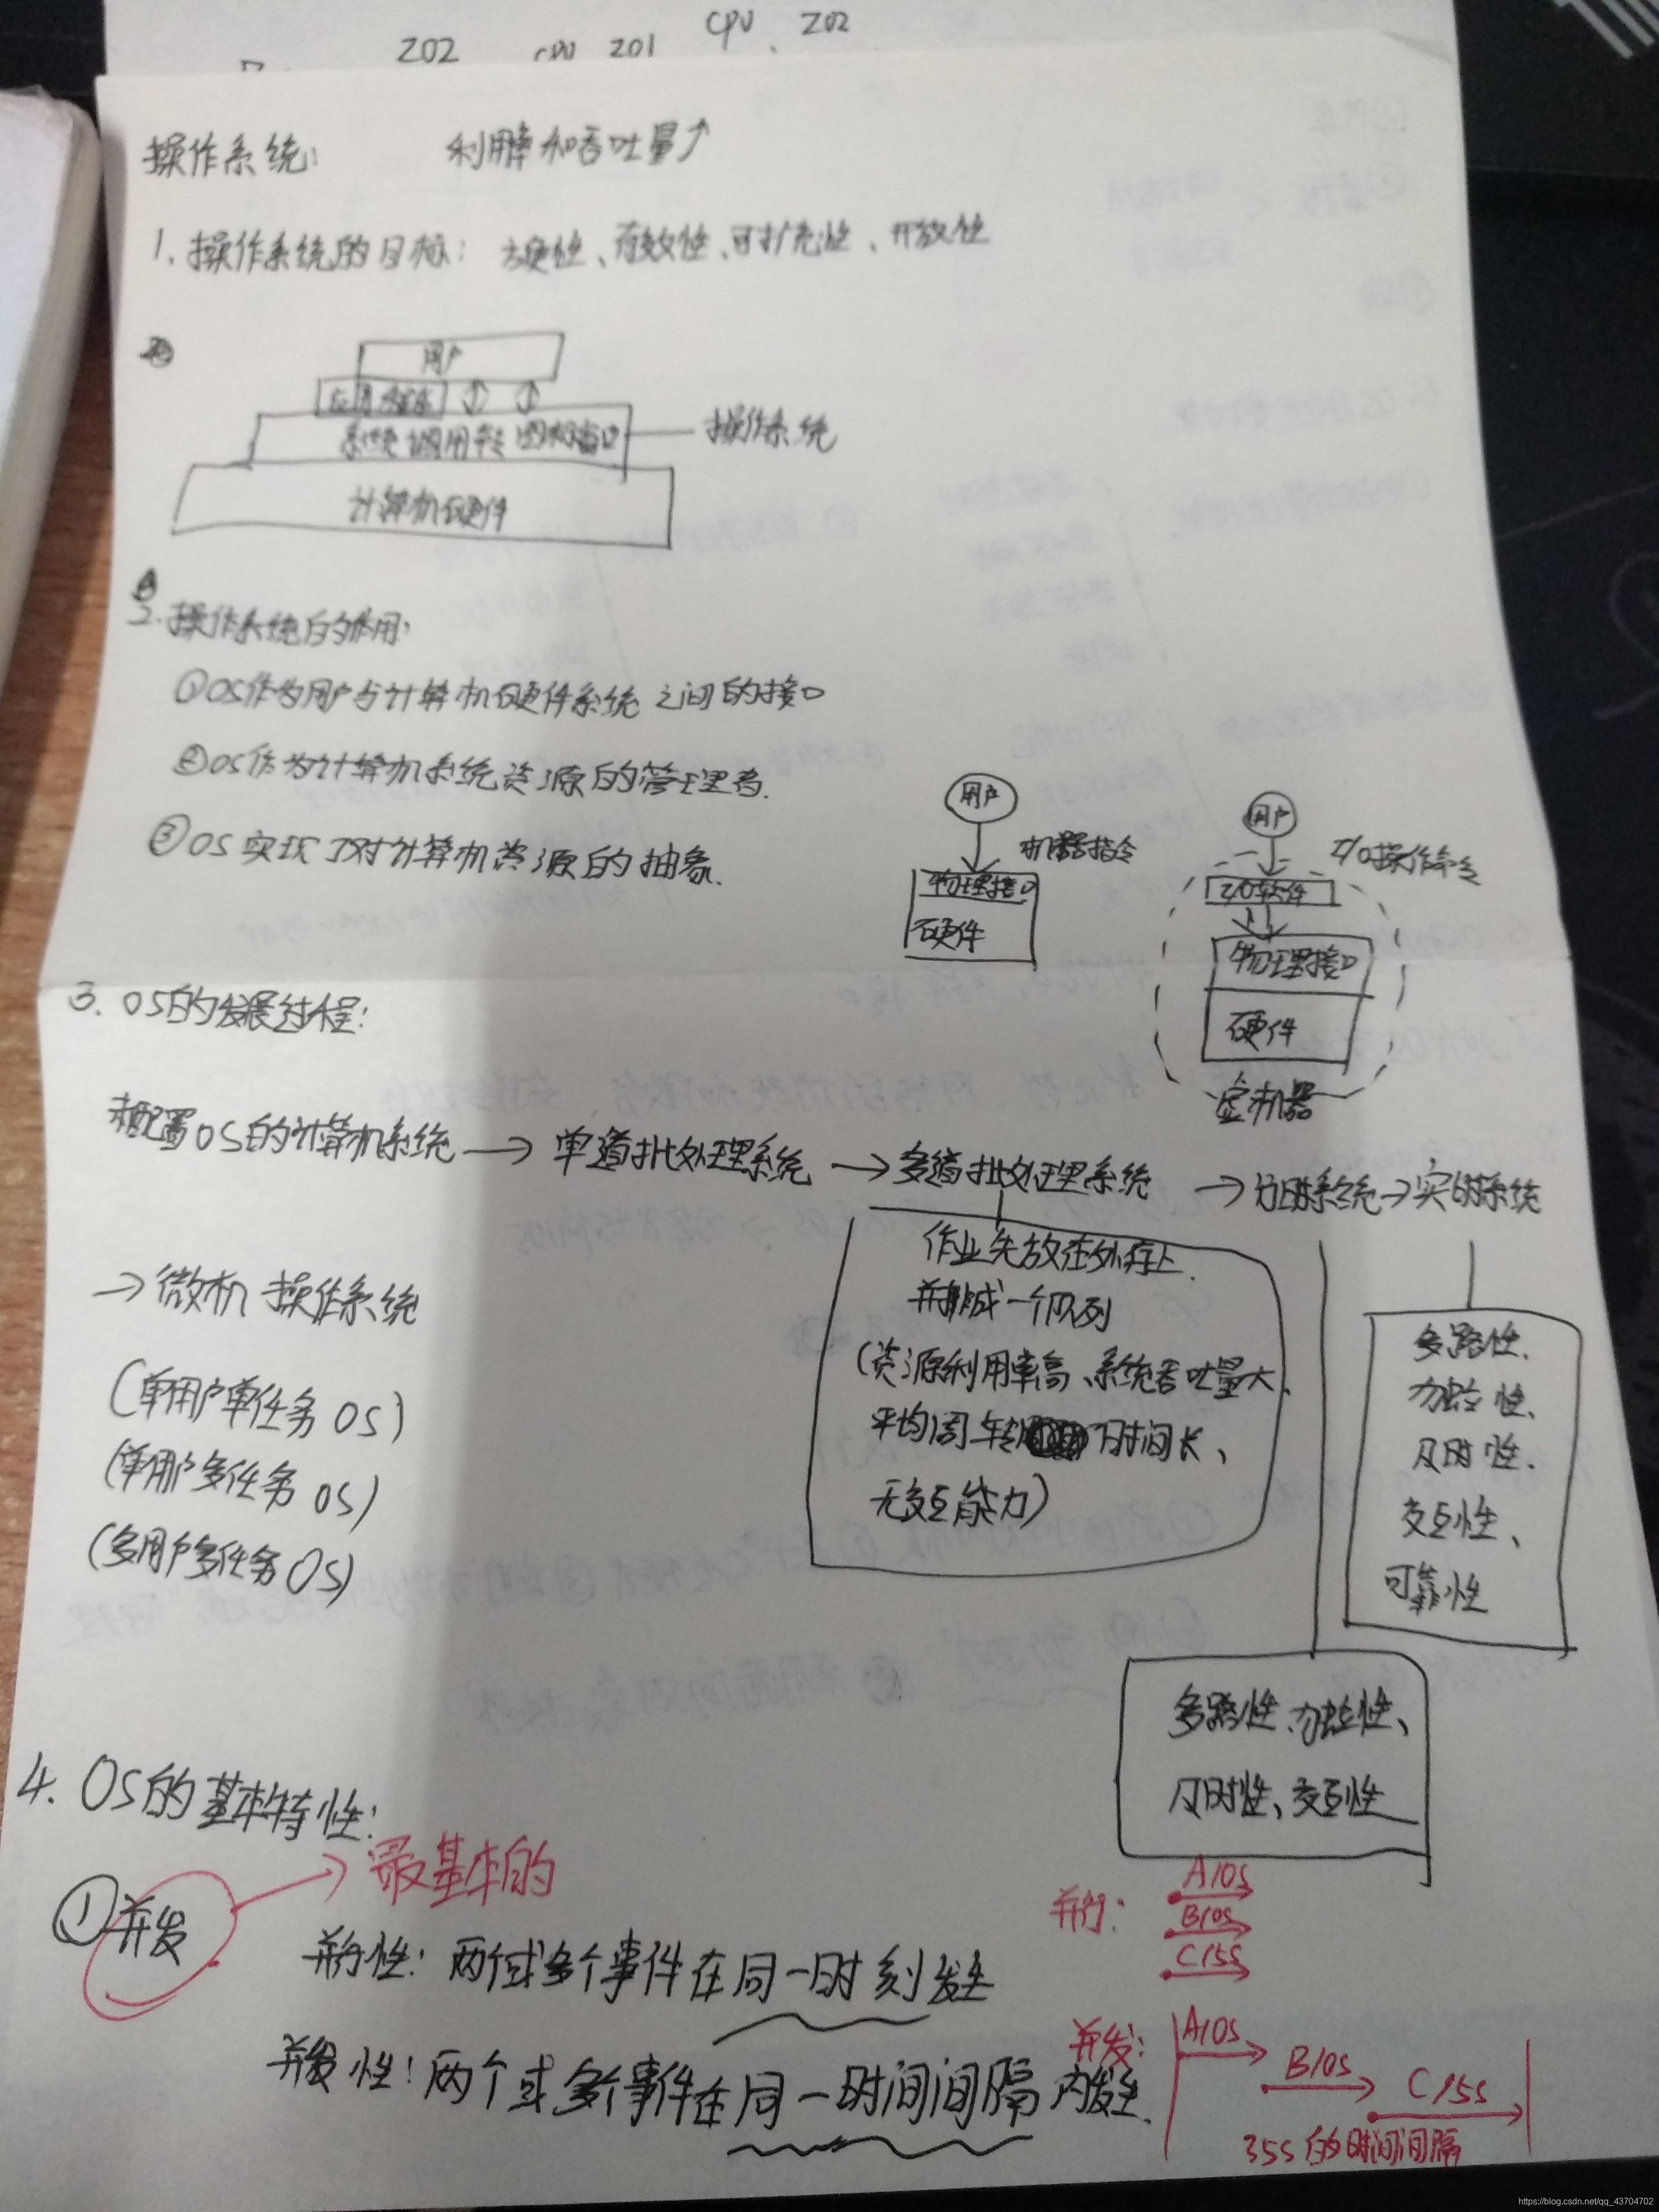 Z02 CPU Z01 CPU、Z02
操作系统: 利用率和吞吐量↑
1. 操作系统的目标: 方便性、有效性、可扩充性、开放性
用户
应用程序
系统调用命令 图标窗口 操作系统
计算机硬件
2. 操作系统的作用:
①OS作为用户与计算机硬件系统之间的接口
②OS作为计算机系统资源的管理者.
③OS实现了对计算机资源的抽象.
用户 机器指令
物理接口
硬件
用户 I/O操作命令
I/O软件
物理接口
硬件
虚机器
3. OS的发展过程:
未配置OS的计算机系统 → 单道批处理系统 → 多道批处理系统 → 分时系统 → 实时系统
→ 微机操作系统
(单用户单任务OS)
(单用户多任务OS)
(多用户多任务OS)
作业先放在外存上.
并排成一个队列
(资源利用率高、系统吞吐量大、
平均周转时间长、
无交互能力)
多路性、
独立性、
及时性、
交互性、
可靠性
多路性、独立性、
及时性、交互性
4. OS的基本特性:
①并发 → 最基本的
并行性: 两个或多个事件在同一时刻发生
并发性: 两个或多个事件在同一时间间隔内发生.
并行: A10S
B10S
C15S
并发: A10S
B10S
C15S
35S的时间间隔
https://blog.csdn.net/qq_43704702